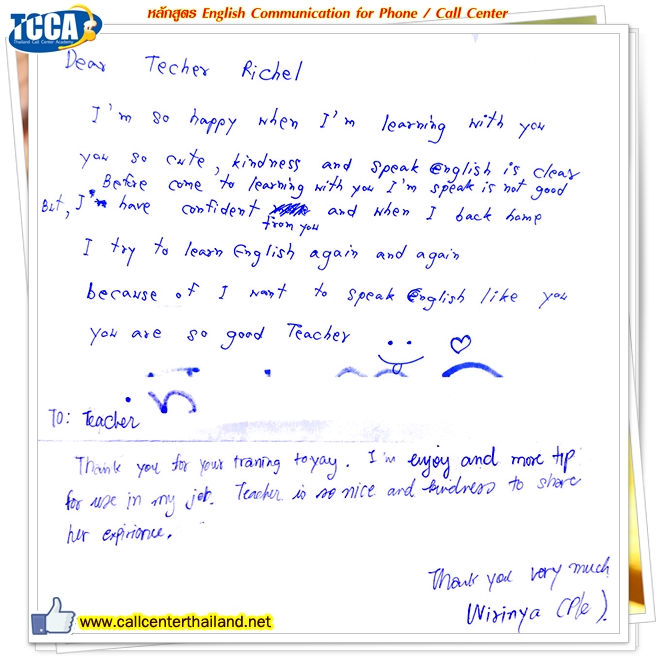 TCCA
Thailand Call Center Academy
หลักสูตร English Communication for Phone / Call Center
Dear Techer Richel
I'm so happy when I'm learning with you
you so cute, kindness and speak English is clear
Before come to learning with you I'm speak is not good
But, I have confident from you and when I back home
I try to learn English again and again
because of I want to speak English like you
you are so good Teacher
TO: Teacher
Thank you for your traning toyay. I'm enjoy and more tip
for use in my job. Teacher is so nice and kindness to share
her expiriance.
Thank you very much
Wirinya (Ple).
www.callcenterthailand.net